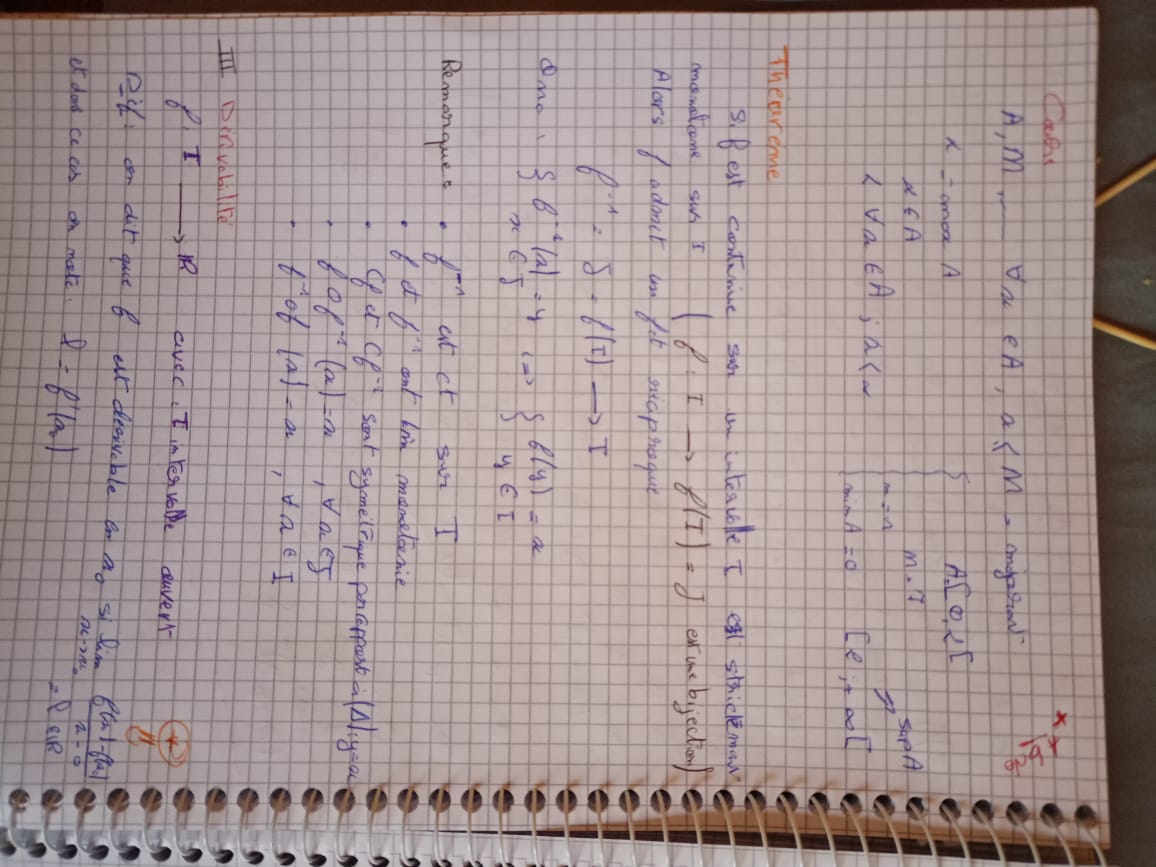 Cours
A, M ... ∀x ∈ A, x ≤ M majorant
α = max A
α ∈ A
∀x ∈ A ; x ≤ α
A [0, 2[
min A = 0
sup A
[ ; +∞[
Theoreme
Si f est continue sur un intervalle I est strictement
monotone sur I ( f : I → f(I) = J est une bijection)
Alors f admet un fct réciproque
f⁻¹ : J = f(I) → I
On a : { f⁻¹(x) = y ⇔ { f(y) = x
x ∈ J y ∈ I
Remarque :
• f⁻¹ est ct sur I
• f et f⁻¹ ont monotonie
• Cf et Cf⁻¹ sont symétrique par rapport à (Δ) : y = x
• f o f⁻¹ (x) = x , ∀x ∈ J
• f⁻¹ o f (x) = x , ∀x ∈ I
III Dérivabilité
f : I → IR avec : I intervalle ouvert
Déf : on dit que f est derivable en x₀ si lim x→x₀ f(x) - f(x₀) / x - 0
= l ∈ IR
et dans ce cas on note : l = f'(x₀)